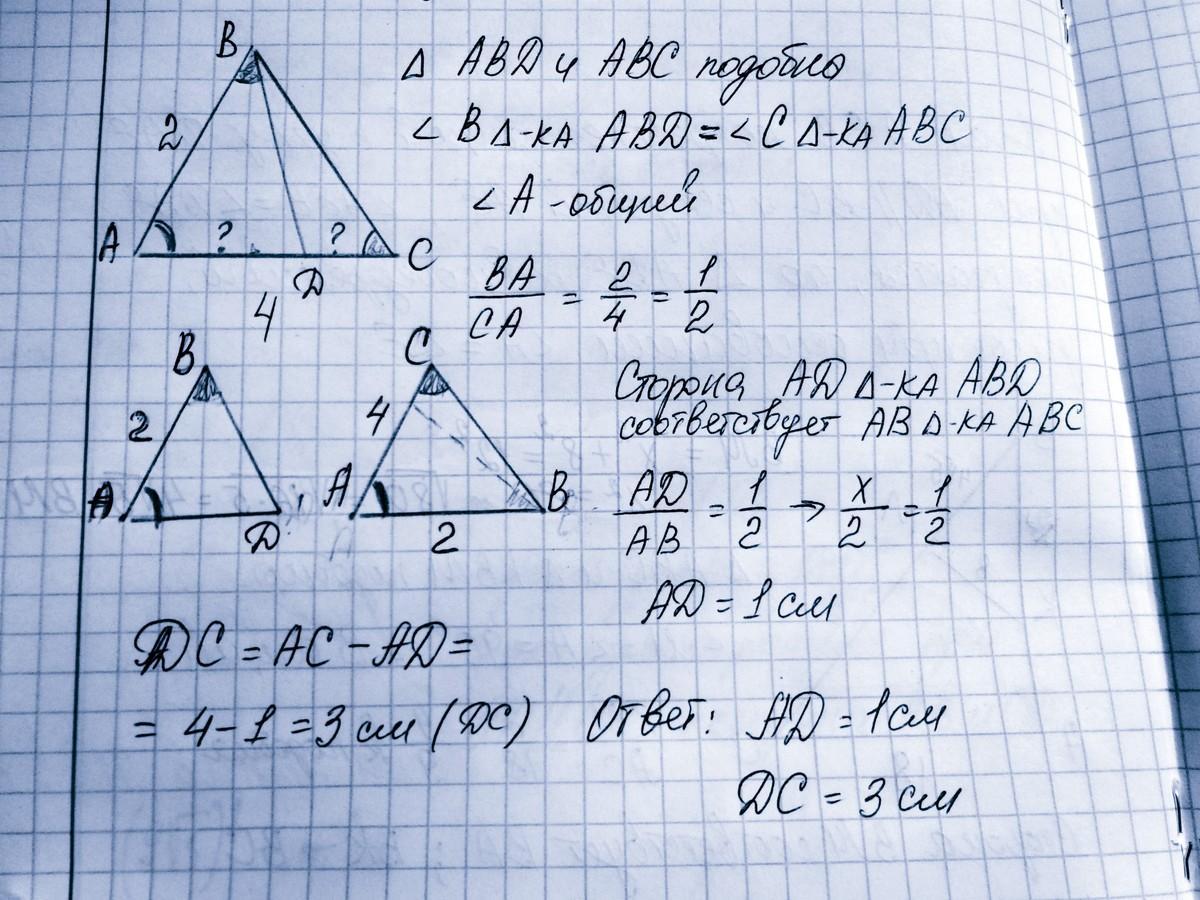 B
Δ ABD и ABC подобно
2
∠ B Δ-ка ABD = ∠ C Δ-ка ABC
∠ A - общий
A ? ? C
D
4
BA/CA = 2/4 = 1/2
B
C
2
4
A
D
A
B
2
Сторона AD Δ-ка ABD
соответствует AB Δ-ка ABC
AD/AB = 1/2 → x/2 = 1/2
AD = 1 см
DC = AC - AD =
= 4 - 1 = 3 см (DC)
Ответ: AD = 1 см
DC = 3 см